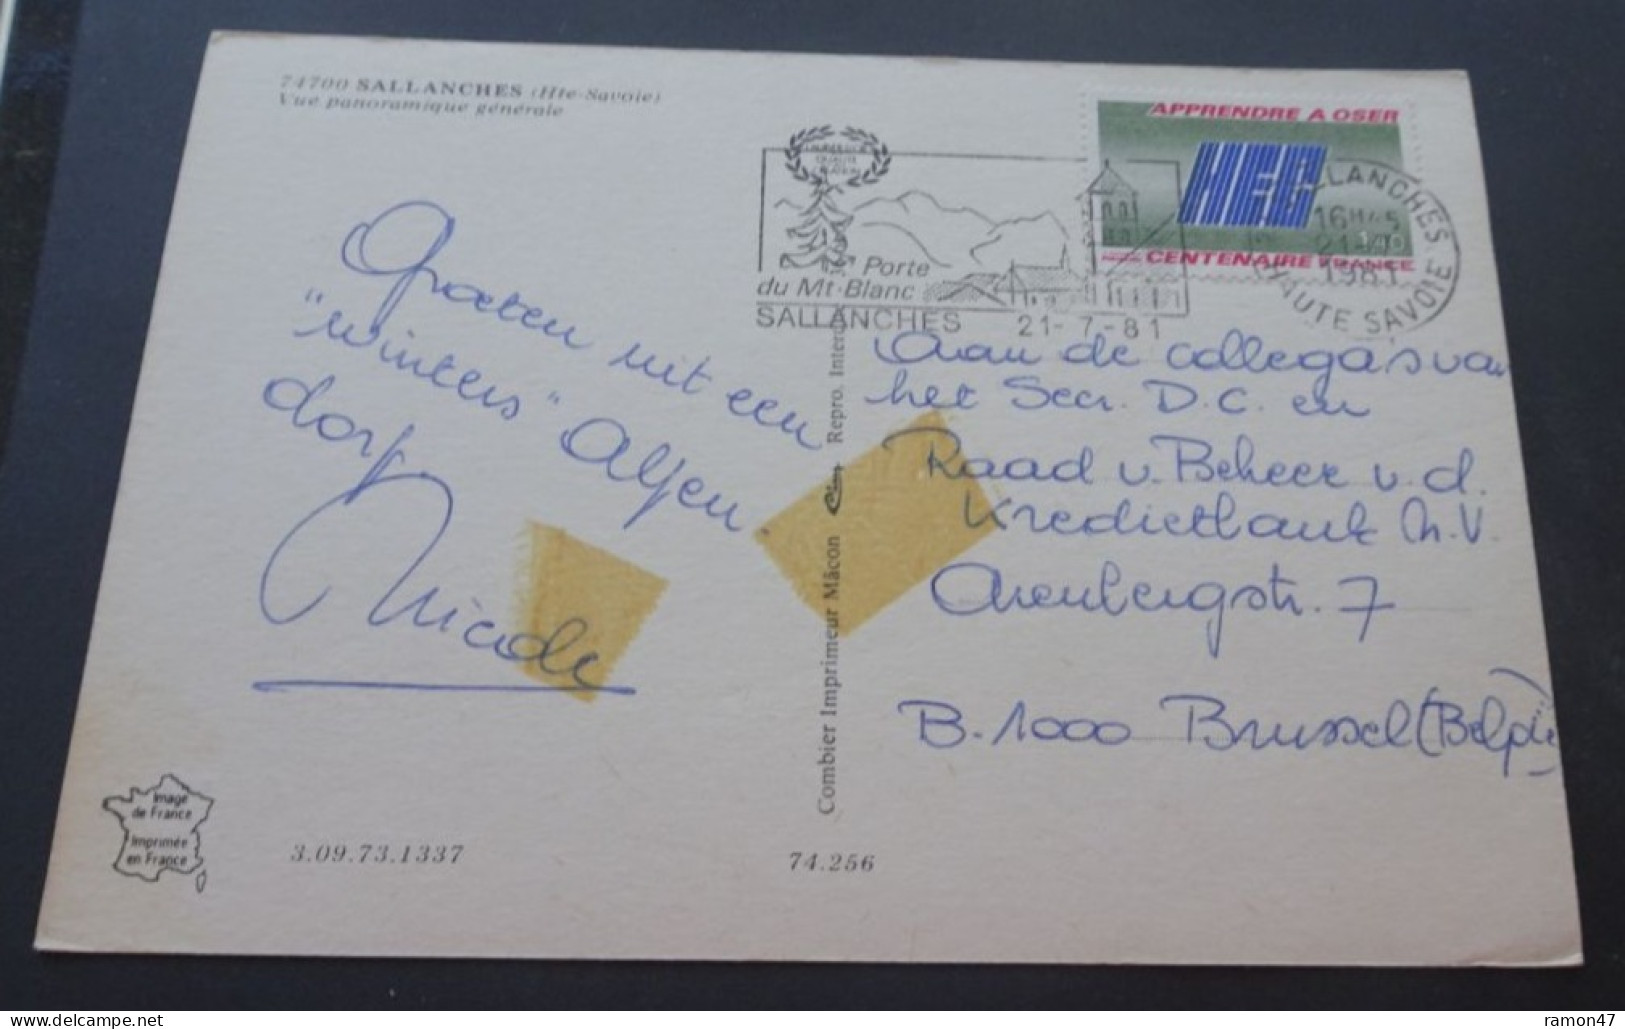 74700 SALLANCHES (Hte-Savoie)
Vue panoramique générale
Groeten uit een
"winters" Alpen
dorp.
Nicole
Image
de France
Imprimée
en France
3.09.73.1337
74.256
Combier Imprimeur Mâcon
Repro. Interd
QUALITE
Porte
du Mt-Blanc
SALLANCHES
21-7-81
APPRENDRE A OSER
HEC
CENTENAIRE FRANCE
SALLANCHES
16H45
21-7
1981
HAUTE SAVOIE
Aan de collegas van
het Secr. D.C. en
Raad v. Beheer v.d.
Kredietbank N.V.
Arenbergstr. 7
B-1000 Brussel (België)
ramon47